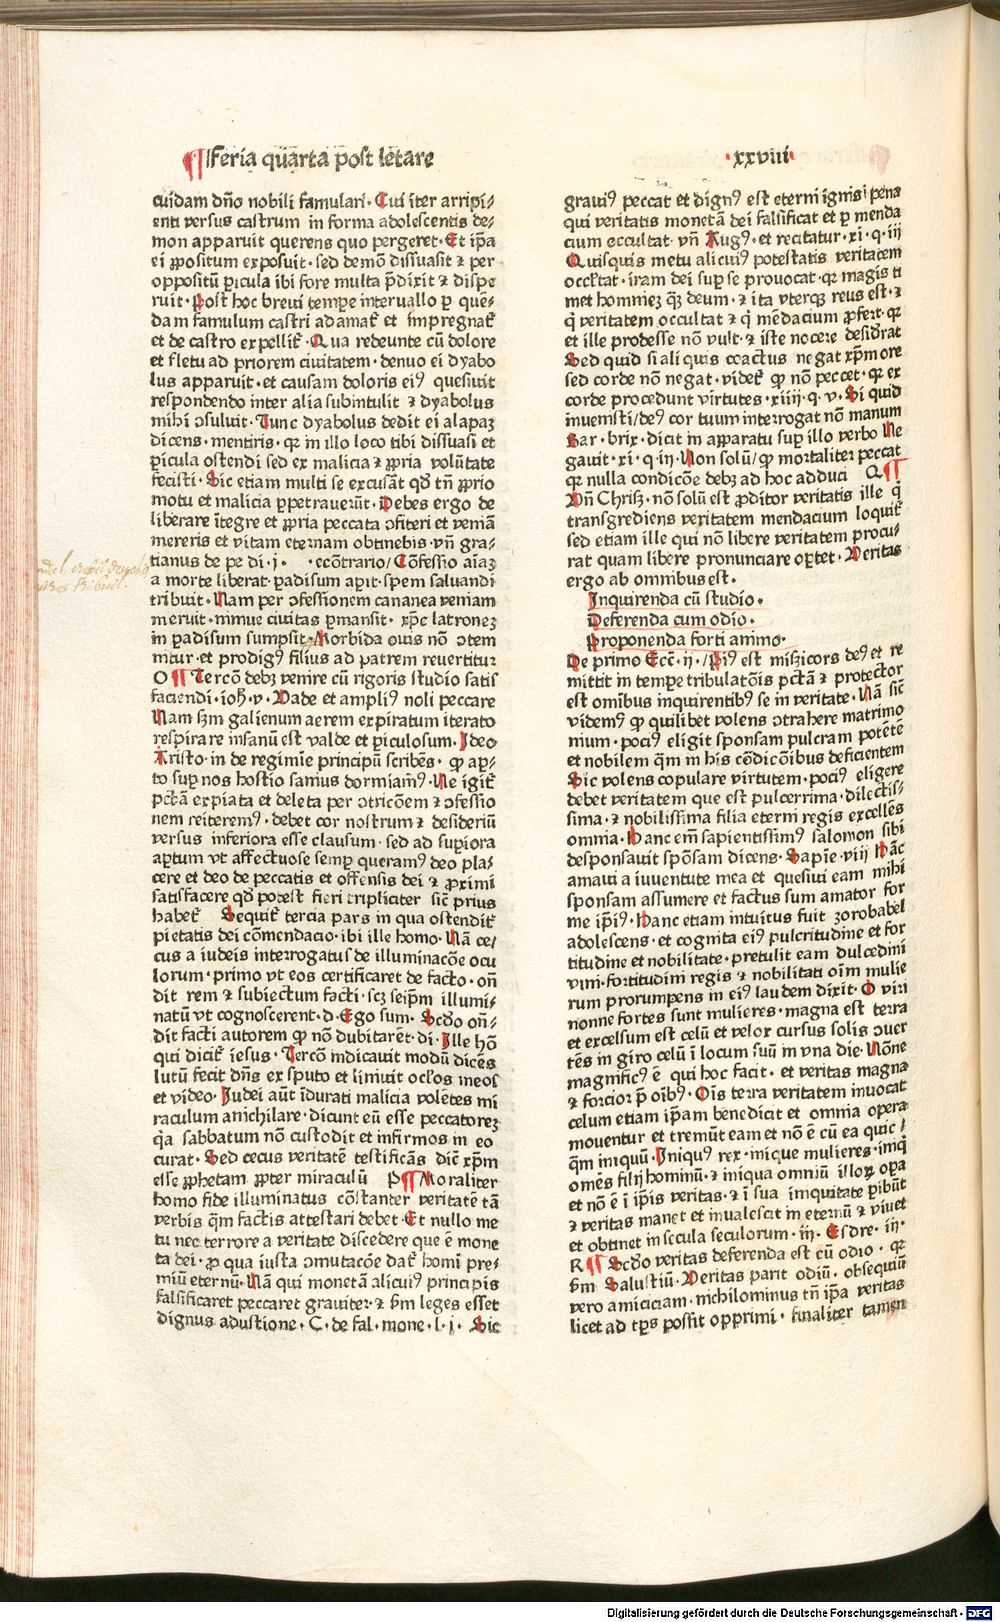 ¶Feria quarta post letare
·xxviii·
cuidam dño nobili famulari. Cui iter arripi⸗
enti versus castrum in forma adolescentis de⸗
mon apparuit querens quo pergeret. Et ip̄a
ei ꝓpositum exposuit. sed demō dissuasit ⁊ per
oppositū ꝑicula ibi fore multa p̄dixit ⁊ dispe
ruit. Post hoc breui tempe interuallo ꝑ quē⸗
dam famulum castri adamat᷑ et impregnat᷑
et de castro expellit᷑. Qua redeunte cū dolore
et fletu ad priorem ciuitatem. denuo ei dyabo
lus apparuit. et causam doloris eiꝰ quesiuit
respondendo inter alia subintulit ⁊ dyabolus
mihi ↄsuluit. Tunc dyabolus dedit ei alapaꝫ
dicens. mentiris. qꝛ in illo loco tibi dissuasi et
ꝑicula ostendi sed ex malicia ⁊ ꝓpria volūtate
fecisti. Sic etiam multi se excusāt qđ tñ ꝓprio
motu et malicia ꝑpetrauerūt. Debes ergo de
liberare ītegre et ꝓpria peccata ↄfiteri et veniā
mereris et vitam eternam obtinebis. vñ gra⸗
tianus de pe di. j. . ecōtrario/ Cōfessio aīaꝫ
a morte liberat. ꝑadisum aꝑit. spem saluandi
tribuit. Nam per ↄfessionem cananea veniam
meruit. niniue ciuitas ꝑmansit. xp̄c latroneꝫ
in ꝑadisum sumpsit. Morbida ouis nō ↄtem
nitur. et prodigꝰ filius ad patrem reuertitur
O ¶ Tercō debꝫ venire cū rigoris studio satis
faciendi. ioh̄. v. Vade et ampliꝰ noli peccare
Nam sꝫm galienum aerem expiratum iterato
respirare insanū est valde et ꝑiculosum. Ideo
Aristo. in de regimīe principū scribēs. ꝙ aꝑ⸗
to suꝑ nos hostio saniꝰ dormiamꝰ. Ne igit᷑
pctā expiata et deleta per ↄtricōem ⁊ ↄfessio
nem reiteremꝰ. debet cor nostrum ⁊ desideriū
versus inferiora esse clausum. sed ad suꝑiora
aꝑtum vt affectuose semꝑ queramꝰ deo pla⸗
cere et deo de peccatis et offensis dei ⁊ ꝓximi
satisfacere qđ potest fieri tripliciter sic̄ prius
habet᷑ Sequit᷑ tercia pars in qua ostendit᷑
pietatis dei cōmendacio. ibi ille homo. Nā ce⸗
cus a iudeis interrogatus de illuminacōe ocu
lorum. primo vt eos certificaret de facto. oñ
dit rem ⁊ subiectum facti. scꝫ seip̄m illumi⸗
natū vt cognoscerent. d. Ego sum. Scđo oñ⸗
dit facti autorem ꝙ nō dubitarēt. di. Ille hō
qui dicit᷑ iesus. Tercō indicauit modū dicēs
lutū fecit dñs ex sputo et liniuit ocłos meos
et video. Iudei aūt īdurati malicia volētes mi
raculum anichilare. dicunt eū esse peccatoreꝫ
qꝛ sabbatum nō custodit et infirmos in eo
curat. Sed cecus veritatē testificās dic̄ xp̄m
esse ꝓphetam ꝓpter miraculū P ¶ Moraliter
homo fide illuminatus cōstanter veritatē tā
verbis q̄m factis attestari debet. Et nullo me
tu nec terrore a veritate discedere que ē mone
ta dei. ꝓ qua iusta ↄmutacōe dat᷑ homi pre⸗
miū eternū. Nā qui monetā alicuiꝰ principis
falsificaret peccaret grauiter. ⁊ ẜm leges esset
dignus adustione. C. de fal. mone. l. j. Sic
grauiꝰ peccat et dignꝰ est eterni ignis pena
qui veritatis monetā dei falsificat et ꝑ menda
cium occultat. vñ Augꝰ. et recitatur. xi. q. iij
Quisquis metu alicuiꝰ potestatis veritatem
occłtat. iram dei suꝑ se prouocat. qꝛ magis ti
met homineꝫ q̄ꝫ deum. ⁊ ita vterqꝫ reus est. ⁊
q̇ veritatem occultat ⁊ q̇ mēdacium ꝓfert. qꝛ
et ille prodesse nō vult. ⁊ iste nocere desiđrat
Sed quid si aliquis coactus negat xp̄m ore
sed corde nō negat. videt᷑ ꝙ nō peccet. qꝛ ex
corde procedunt virtutes. xiiij. q. v. Si quid
inuenisti/deꝰ cor tuum interrogat nō manum
Bar. brix. dicit in apparatu suꝑ illo verbo Ne
gauit. xi. q. iij. Non solū/ꝙ mortaliter peccat
qꝛ nulla condicōe debꝫ ad hoc adduci Q ¶
Vñ Chrisꝫ. nō solū est ꝓditor veritatis ille q̇
transgrediens veritatem mendacium loquit᷑
sed etiam ille qui nō libere veritatem procu⸗
rat quam libere pronunciare oꝑtet. Veritas
ergo ab omnibus est.
Inquirenda cū studio.
Deferenda cum odio.
Proponenda forti animo.
De primo Ecc̄. ii. /Piꝰ est misꝫicors deꝰ et re
mittit in tempe tribulatōis pctā ⁊ protector
est omībus inquirentibꝰ se in veritate. Nā sic̄
videmꝰ ꝙ quilibet volens ↄtrahere matrimo
nium. pociꝰ eligit sponsam pulcram potētē
et nobilem q̄m in his cōdicōibus deficientem
Sic volens copulare virtutem. pociꝰ eligere
debet veritatem que est pulcerrima. dilectis⸗
sima. ⁊ nobilissima filia eterni regis excellēs
omnia. Hanc em̄ sapientissimꝰ salomon sibi
desponsauit spōsam dicens. Sapīe. viij Hāc
amaui a iuuentute mea et quesiui eam mihi
sponsam assumere et factus sum amator for
me ip̄iꝰ. Hanc etiam intuitus fuit zorobabel
adolescens. et cognita eiꝰ pulcritudine et for
titudine et nobilitate. pretulit eam dulcedini
vini. fortitudini regis ⁊ nobilitati oīm mulie
rum prorumpens in eiꝰ laudem dixit. O viri
nonne fortes sunt mulieres. magna est terra
et excelsum est celū et velox cursus solis ↄuer
tēs in giro celū ī locum suū in vna die. Nōne
magnificꝰ ē qui hoc facit. et veritas magna
⁊ forcior p̄ oībꝰ. Oīs terra veritatem inuocat
celum etiam ip̄am benedicit et omnia opera
mouentur et tremūt eam et nō ē cū ea quic⸗
q̄m iniquū. Iniquꝰ rex. inique mulieres. iniq̇
omēs filij hominū. ⁊ iniqua omniū illoꝝ oꝑa
et nō ē ī ip̄is veritas. ⁊ ī sua iniquitate ꝑibūt
⁊ veritas manet et inualescit in eternū ⁊ viuet
et obtinet in secula seculorum. iij. Esdre. iij.
R ¶ Scđo veritas deferenda est cū odio. qꝛ
ẜm Salustiū. Veritas parit odiū. obsequiū
vero amiciciam. nichilominus tñ ip̄a veritas
licet ad tp̄s possit opprimi. finaliter tamen
Digitalisierung gefördert durch die Deutsche Forschungsgemeinschaft - DFG